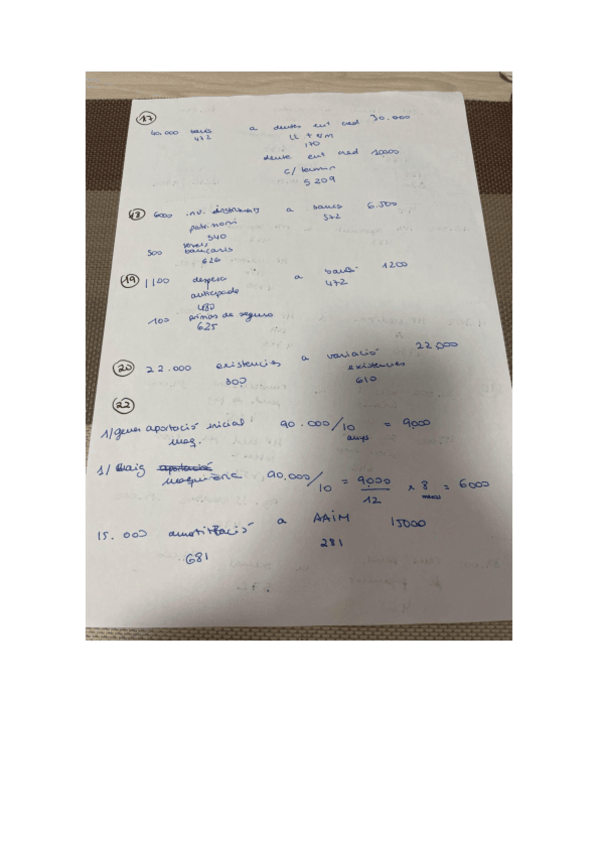 17
40.000 bancs a deutes ent cred 30.000
472 LL T e/m
170
deute ent cred 10000
c/ termini
5209
18 6000 inv. a bancs 6.500
patrimoni 572
540
500 serveis
bancaris
626
19 1100 despesa a bancs 1200
anticipada 472
480
100 primas de seguro
625
20 22.000 existencies a variació 22.000
300 existencies
610
22
1/gener aportació inicial 90.000/10 = 9000
maq. anys
1/ Maig aportació
maquinària 90.000/10 = 9000/12 x 8 = 6000
mesos
15.000 amortització a AAIM 15000
681 281